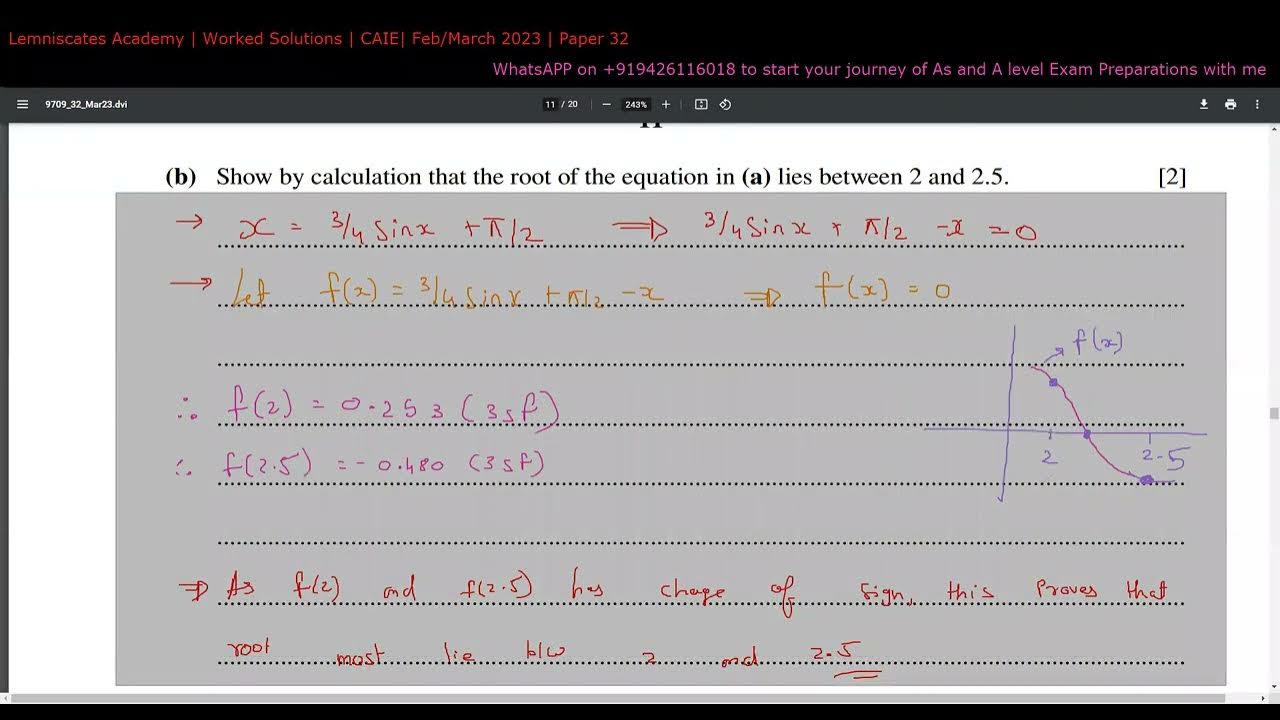 Lemniscates Academy | Worked Solutions | CAIE| Feb/March 2023 | Paper 32
WhatsAPP on +919426116018 to start your journey of As and A level Exam Preparations with me
9709_32_Mar23.dvi
11 / 20
243%
(b) Show by calculation that the root of the equation in (a) lies between 2 and 2.5. [2]
→ x = 3/4 sinx + π/2 ⟹ 3/4 sinx + π/2 - x = 0
→ Let f(x) = 3/4 sinx + π/2 - x ⟹ f(x) = 0
f(x)
∴ f(2) = 0.253 (3sf)
2 2.5
∴ f(2.5) = - 0.480 (3sf)
⇒ As f(2) and f(2.5) has change of sign, this proves that
root most lie b/w 2 and 2.5